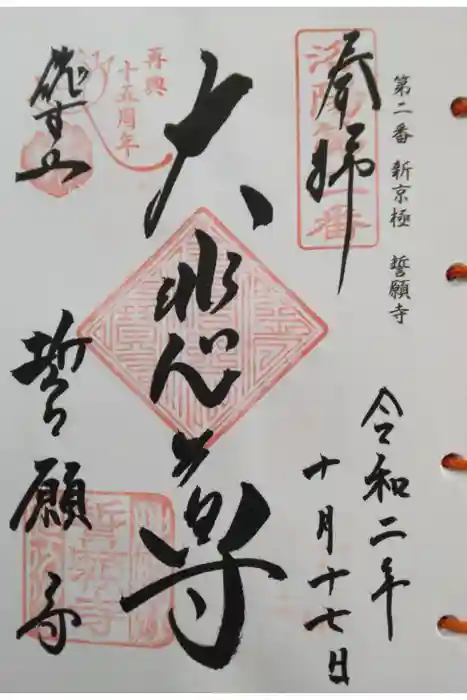 第二番 新京極 誓願寺
奉拝
洛陽第二番
令和二年
十月十七日
大悲尊
再興
十五周年
誓願寺